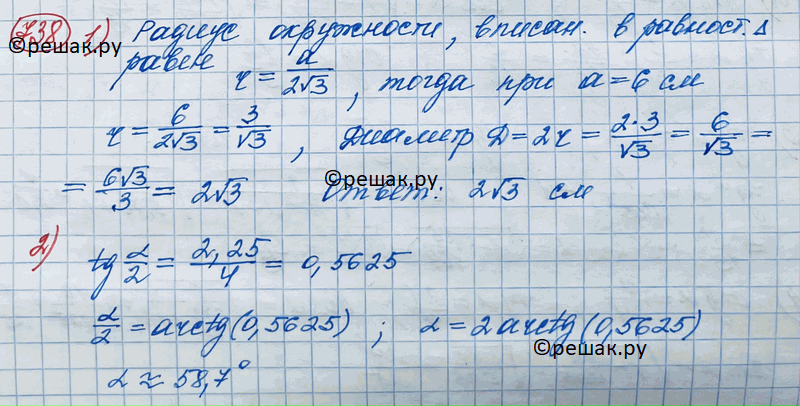 738 1) Радиус окружности, вписан. в равност. Δ
©решак.ру
равен r = a/(2√3), тогда при a = 6 см
r = 6/(2√3) = 3/√3, Диаметр D = 2r = (2·3)/√3 = 6/√3 =
= 6√3/3 = 2√3 Ответ: 2√3 см
©решак.ру
2) tg α/2 = 2,25/4 = 0,5625
α/2 = arctg(0,5625); α = 2arctg(0,5625)
©решак.ру
α ≈ 58,7°